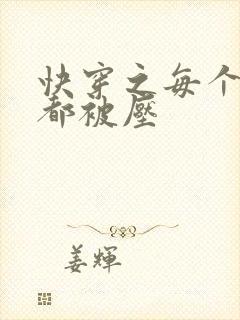 快穿之每个
都被压
姜辉